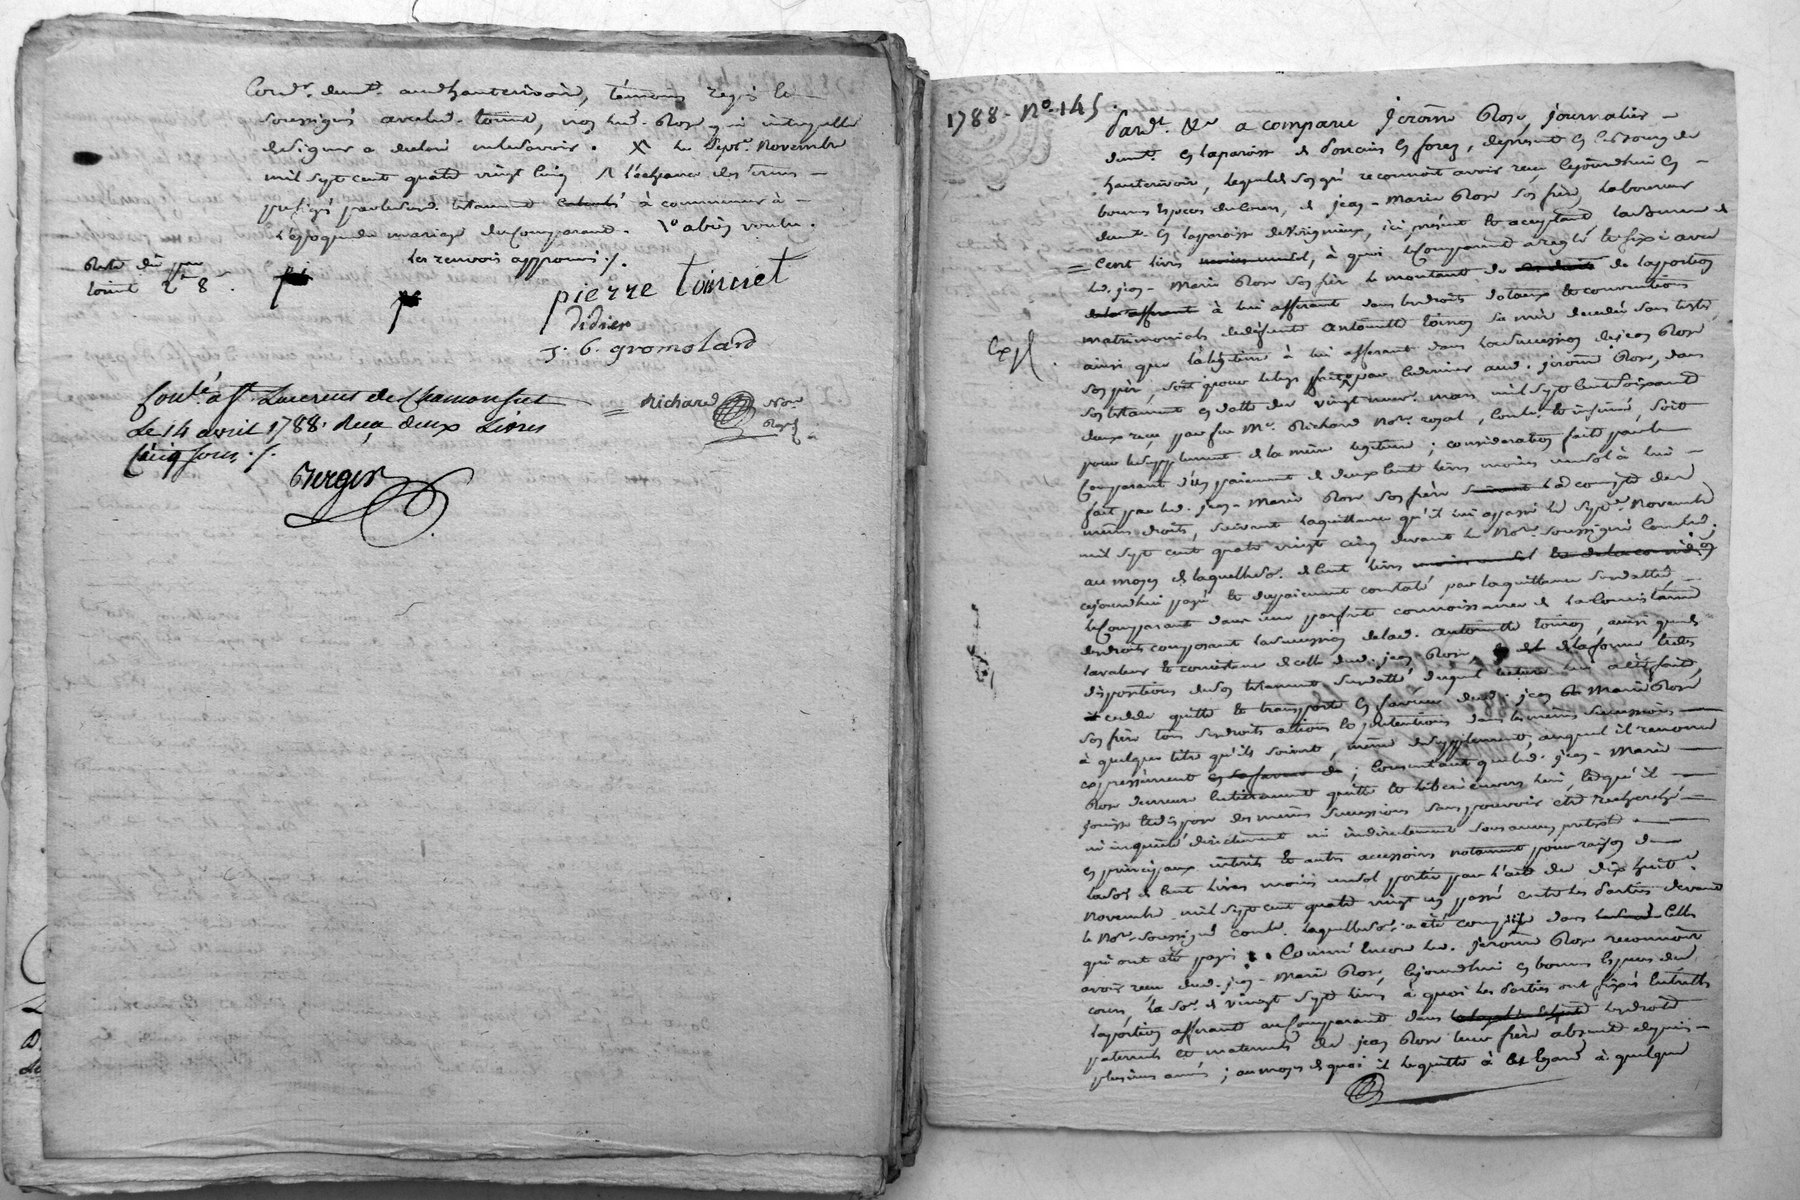 demt. audhauterivoire, témoins
soussignés avec led. toinet, non led. Rose qui interpellé
de signer a déclaré ne le savoir. X le sept. Novembre
mil sept cent quatre vingt cinq à l'échéance des termes
préfigés par led. testament à commencer à
l'époque du mariage du comparant.
les renvois approuvés ./.
pierre toinnet
didier
J. C. gromolard
Richard Nore Royal
Conlé. à St Laurent de Chamousset
Le 14 avril 1788. Reçu deux Livres
Cinq sous ./.
Berger
1788 - No. 145
Pardt. &e a comparu jerome Rose, journalier
demt. en la paroisse de en forez, de présent en ce bourg de
hauterivoire, lequel de son gré reconnoit avoir reçu cejourdhui en
bonnes espèces du cours, de jean-Marie Rose son frère laboureur
demt. en la paroisse de, ici présent et acceptant la somme de
Cent livres, à quoi le Comparant a reglé et fixé avec
led. jean-Marie Rose son frère le montant de de la portion
à lui afferante dans les droits dotaux et conventions
matrimoniales de défunte antoinette toinon sa mère décédée sans tester,
ainsi que la légitime à lui afferante dans la succession de jean Rose
Exp.
son père, soit pour le legs fait par ce dernier aud. jerome Rose, dans
son testament en datte du vingt neuf mars mil sept cent soixante
deux reçu par feu Me. Richard Nore. royal, Conlé. et insinué, soit
pour le supplement de la même legitime; consideration faite par le
Comparant d'un paiement de deux cent livres moins un sol à lui
fait par led. jean-Marie Rose son frère à compte des
mêmes droits, suivant la quittance qu'il lui a passé le sept Novembre
mil sept cent quatre vingt cinq devant le Nore. soussigné
au moyen de laquelle so. de cent livres
cejourdhui payé et du paiement constaté par la quittance susdattée
le Comparant dans une parfaite connoissance de la consistance
des droits composant la succession de lad. antoinette toinon, ainsi que de
la valeur et consistance de celle dud. jean Rose, de la forme et des
dispositions de son testament susdatté duquel lecture lui a été faite,
cede quitte et transporte en faveur dud. jean Marie Rose
son frère tous ses droits actions et prétentions dans les mêmes successions
à quelque titre qu'ils soient, même de supplement, auquel il renonce
expressément; Consentant que led. jean-Marie
Rose demeure entierement quitte et libéré envers lui, et qu'il
jouisse et dispose des mêmes successions sans pouvoir être recherché
ni inquiété directement ni indirectement sous aucun pretexte
en principaux intérêts et autres accessoires notament pour raison de
la so. de cent livres moins un sol portée par l'acte du dix huit
Novembre mil sept cent quatre vingt un passé entre les Parties devant
le Nore. soussigné laquelle so. a été comprise dans celles
qui ont été payé. Comme encore led. jerome Rose reconnoit
avoir reçu dud. jean-Marie Rose, cejourdhui en bonnes espèces du
cours, la so. de vingt sept livres à quoi les Parties ont fixés entrelles
la portion afferante au Comparant dans les droits
paternels et maternels de jean Rose leur frère absent depuis
plusieurs années; au moyen de quoi il le quitte à cet egard à quelque